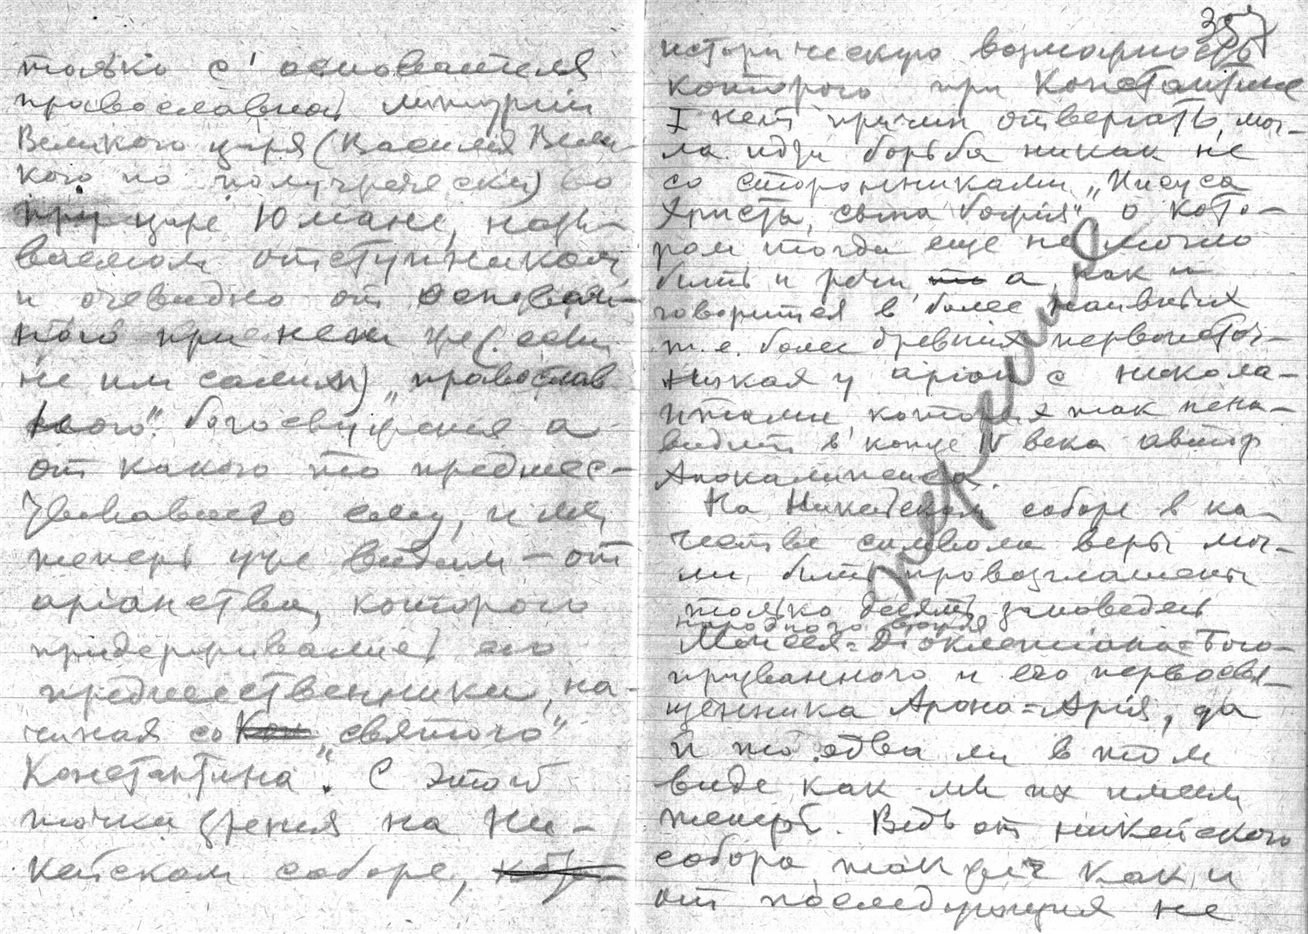 только с основателя
православной литургии
Великого царя (Василия Вели-
кого по полугречески) во
при царе Юлиане, назы-
ваемом отступником
и очевидно от основан-
ного при нем же (если
не им самим) „православ
ного" богослужения а
от какого то предшес-
твовавшего ему, и мы
теперь уже видим — от
арианства, которого
придерживались его
предшественники, на-
чиная со Кон „святого"
Константина". С этой
точки зрения на Ни-
кейском соборе,
357
историческую возможность
которого при Константине
I нет причин отвергать, мог-
ла идти борьба никак не
со сторонниками „Иисуса
Христа, сына божия" о кото-
ром тогда еще не могло
быть и речи, то а, как и
говорится в более наивных
т.е. более древних первоисточ-
никах у ариан с никола-
итами, которых так нена-
видит в конце IV века автор
Апокалипсиса.
На Никейском соборе в ка-
честве символа веры мог-
ли быть провозглашены
только десять заповедей
народного вождя
Моисея=Диоклетиана=Бого-
призванного и его первосвя-
щенника Арона=Ария, да
и то едва ли в том
виде как мы их имеем
теперь. Ведь от никейского
собора, так же как и
от последующих не